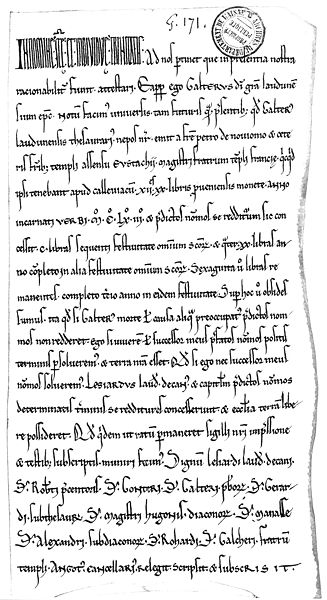 G. 171.
IN NOMINE ... Ad nos ptinet que in presentia nostra
racionabiliter fiunt attestari. Eapp ego Galterus di gra laudunen
sium epc. Notu facim universis tam futuris qm presentib; qd Galter
laudunensis thesaurari nepos nr. emit a fre petro de noviomo & cete
ris frib; templi assensu Eustachii magistri fratrum tepli francie. qcqd
ipsi tenebant apud calleviacu. libris pruvenensis monete. Anno
incarnati VERBI. M. C. LX. III. & pdictos nomos se redditurum sic con
cessit. C. libras sequenti festivitate omnium scor. & libras an
no completo in alia festivitate omnium scor. Sexaginta libras re
manentes. completo tercio anno in eadem festivitate. Sup hoc obsides
sumus. ita qd si Galter morte l causa aliqua preoccupat pdictos nom
mos non redderet. ego si viverem l successor meus pfatos nomos positis
terminis psolverem. & terra mea esset. Qd si ego nec successor meus
nomos solverem. Lesiardus laud. decan. & capitlm pdictos nomos
determinatis terminis se reddituros concesserunt. & ecclia terra libe
re possideret. Qd qdem ut ratum permaneret sigilli nri impssione
& testib; subscriptis muniri fecim. Signum Lesiardi laud. decani.
S. Robti pcentoris. S. Gonteri. S. Galteri pbror. S. Gerar
di. subthesaur. S. magistri hugonis. diaconor. S. Manasse.
S. Alexandri. subdiaconor. S. Rohardi. S. Galcheri. fratrum
templi. Angot cancellarius relegit. scripsit. & SUBSCRIPSIT.